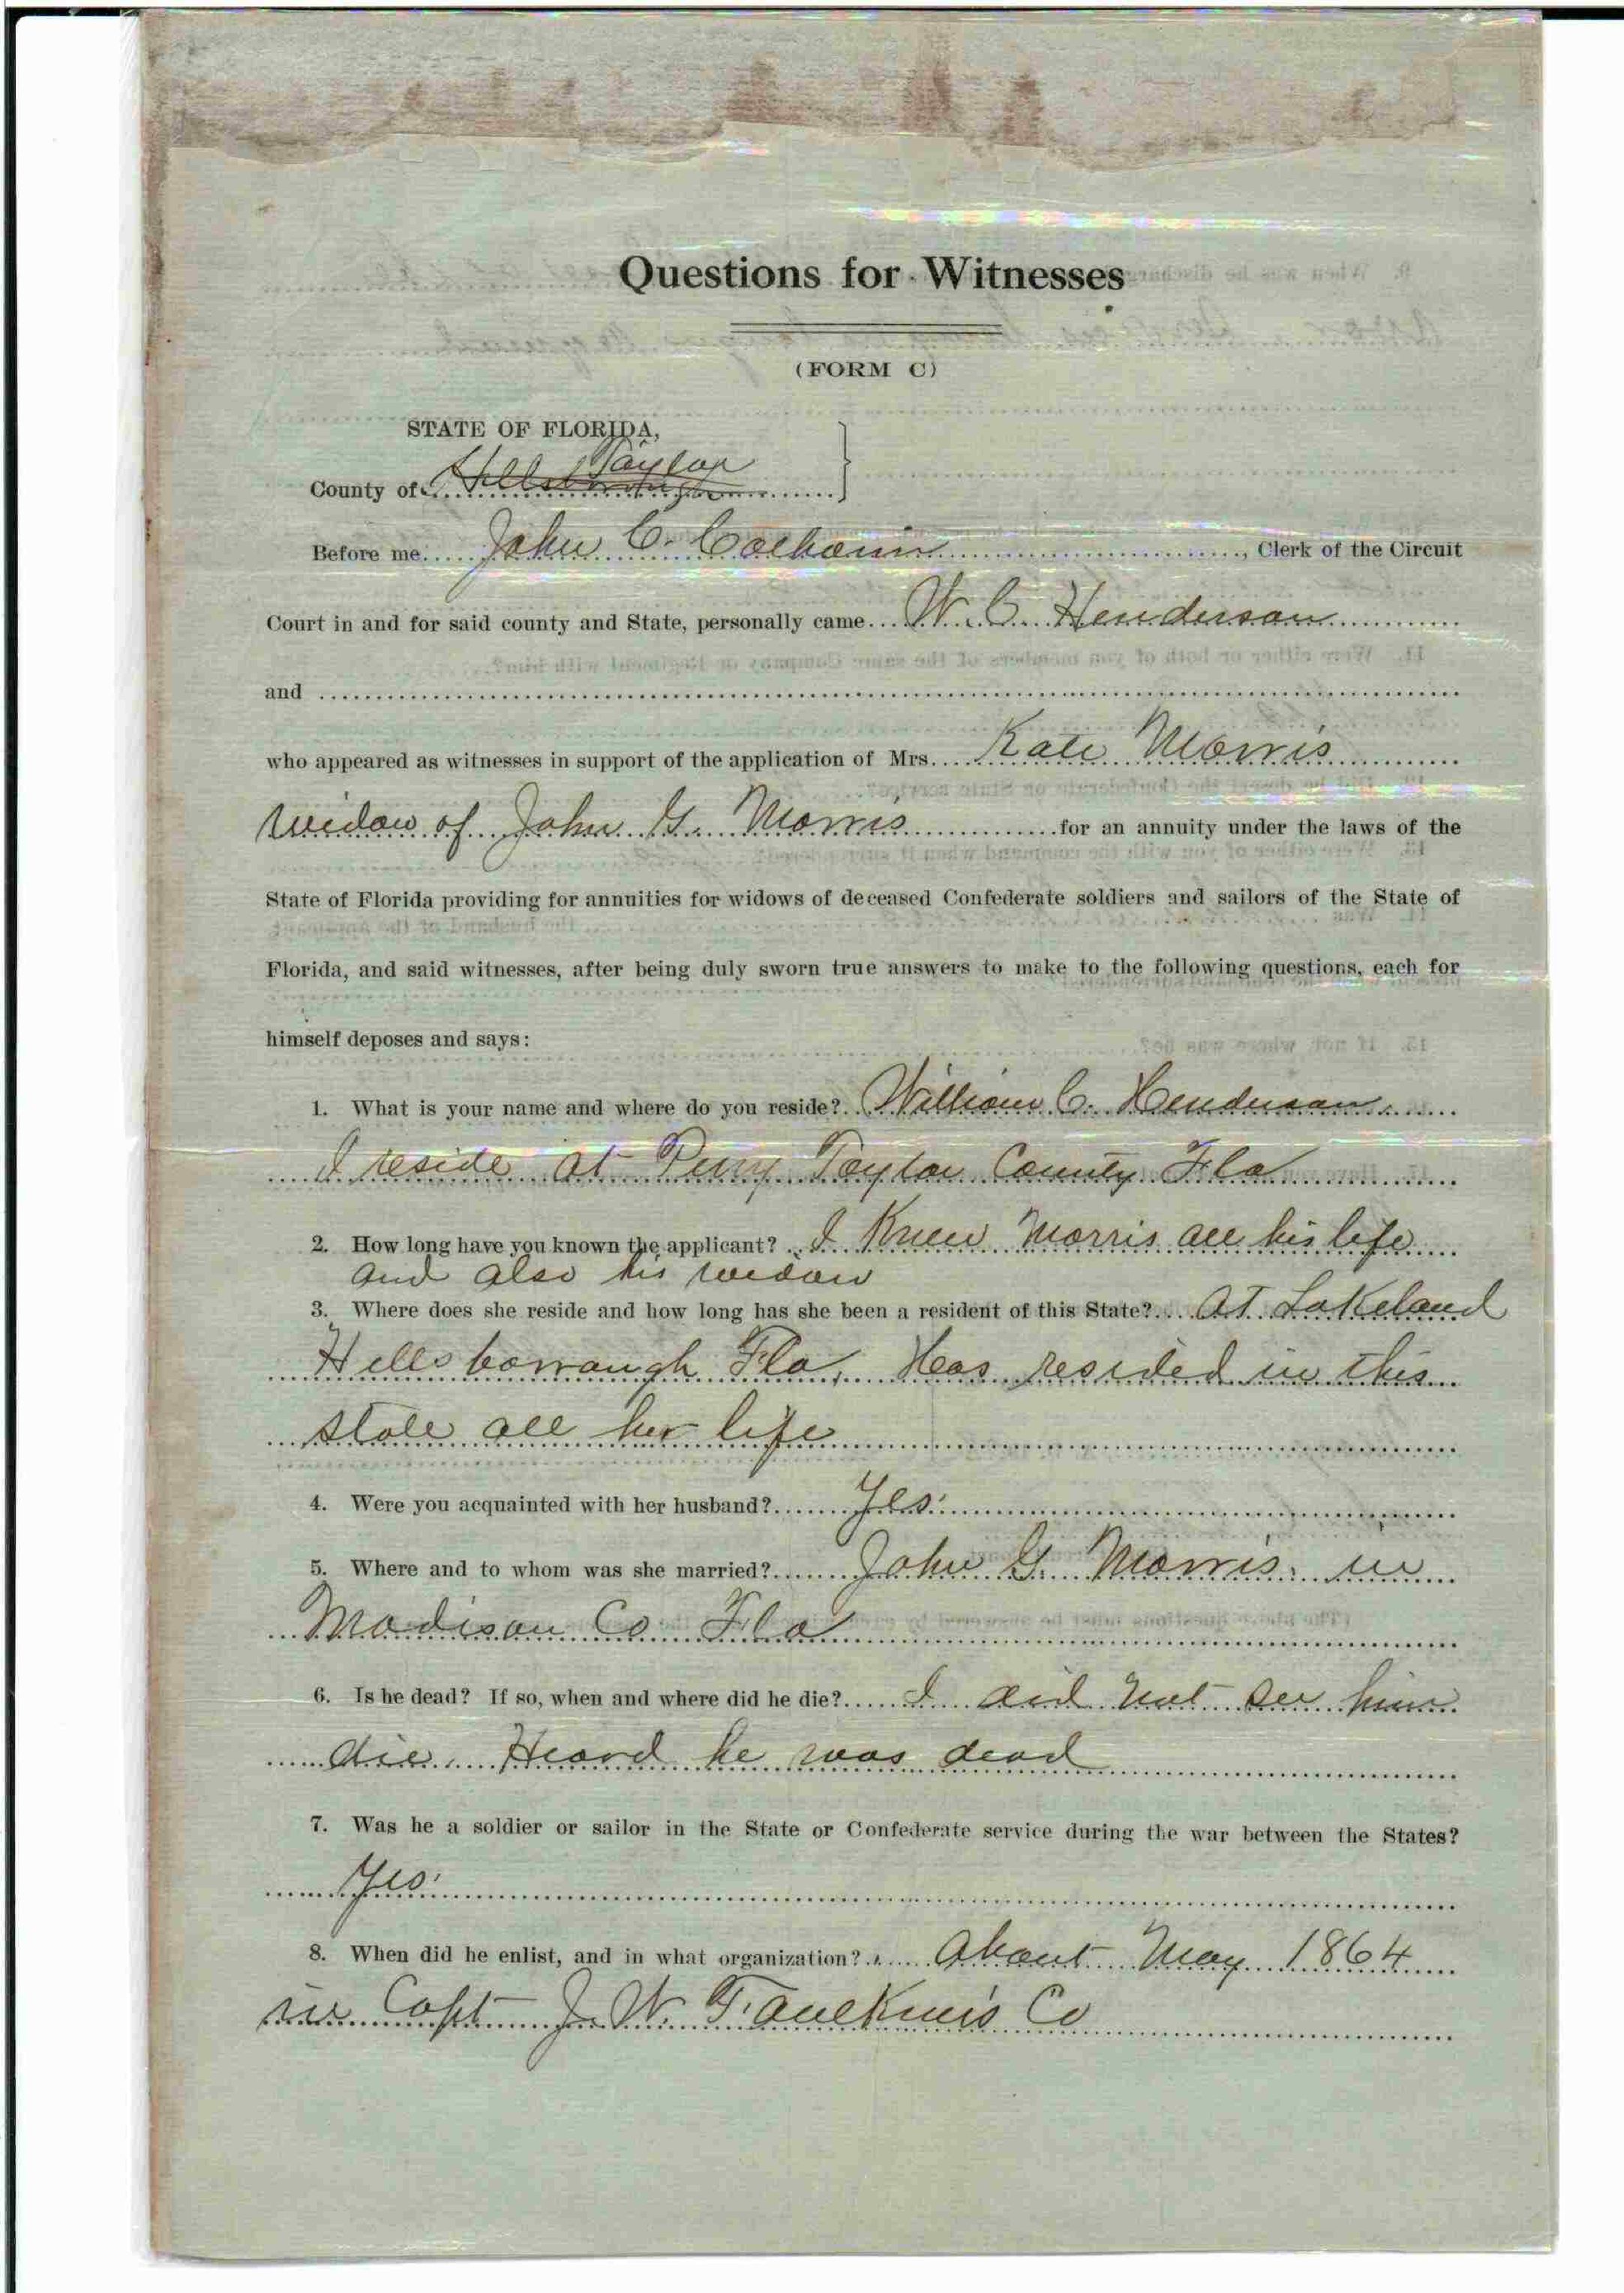 Questions for Witnesses
(FORM C)
STATE OF FLORIDA,
Taylor
County of Hillsborough
Before me John C. Calhoun, Clerk of the Circuit
Court in and for said county and State, personally came W. C. Henderson
and
who appeared as witnesses in support of the application of Mrs. Kate Morris
widow of John G. Morris for an annuity under the laws of the
State of Florida providing for annuities for widows of deceased Confederate soldiers and sailors of the State of
Florida, and said witnesses, after being duly sworn true answers to make to the following questions, each for
himself deposes and says:
1. What is your name and where do you reside? William C. Henderson
I reside at Perry Taylor County Fla
2. How long have you known the applicant? I Knew Morris all his life
and also his widow
3. Where does she reside and how long has she been a resident of this State? At Lakeland
Hillsborrough Fla, Has resided in this
state all her life
4. Were you acquainted with her husband? Yes.
5. Where and to whom was she married? John G. Morris, in
Madison Co Fla
6. Is he dead? If so, when and where did he die? I did not see him
die. Heard he was dead
7. Was he a soldier or sailor in the State or Confederate service during the war between the States?
Yes.
8. When did he enlist, and in what organization? About May 1864
in Capt J. W. Co